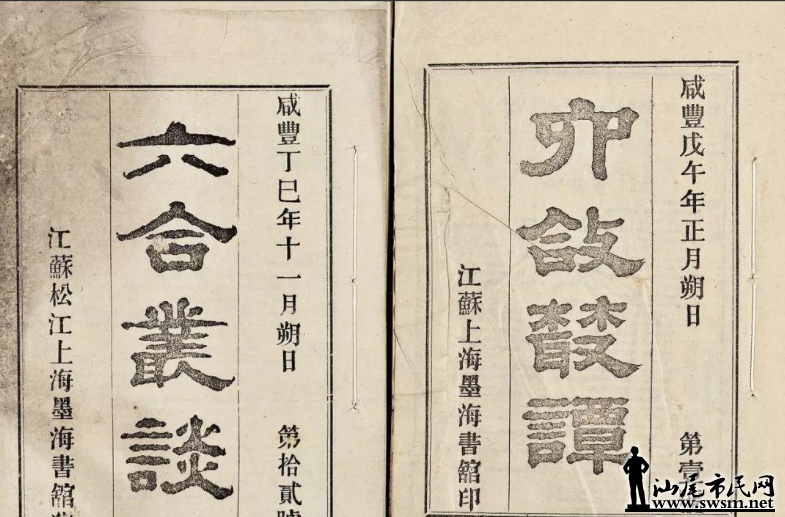 咸豐戊午年正月朔日 第壹
敆 譚
江蘇上海墨海書舘印
咸豐丁巳年十一月朔日 第拾貳號
六合叢談
江蘇松江上海墨海書舘
汕尾市民网
www.swsm.net